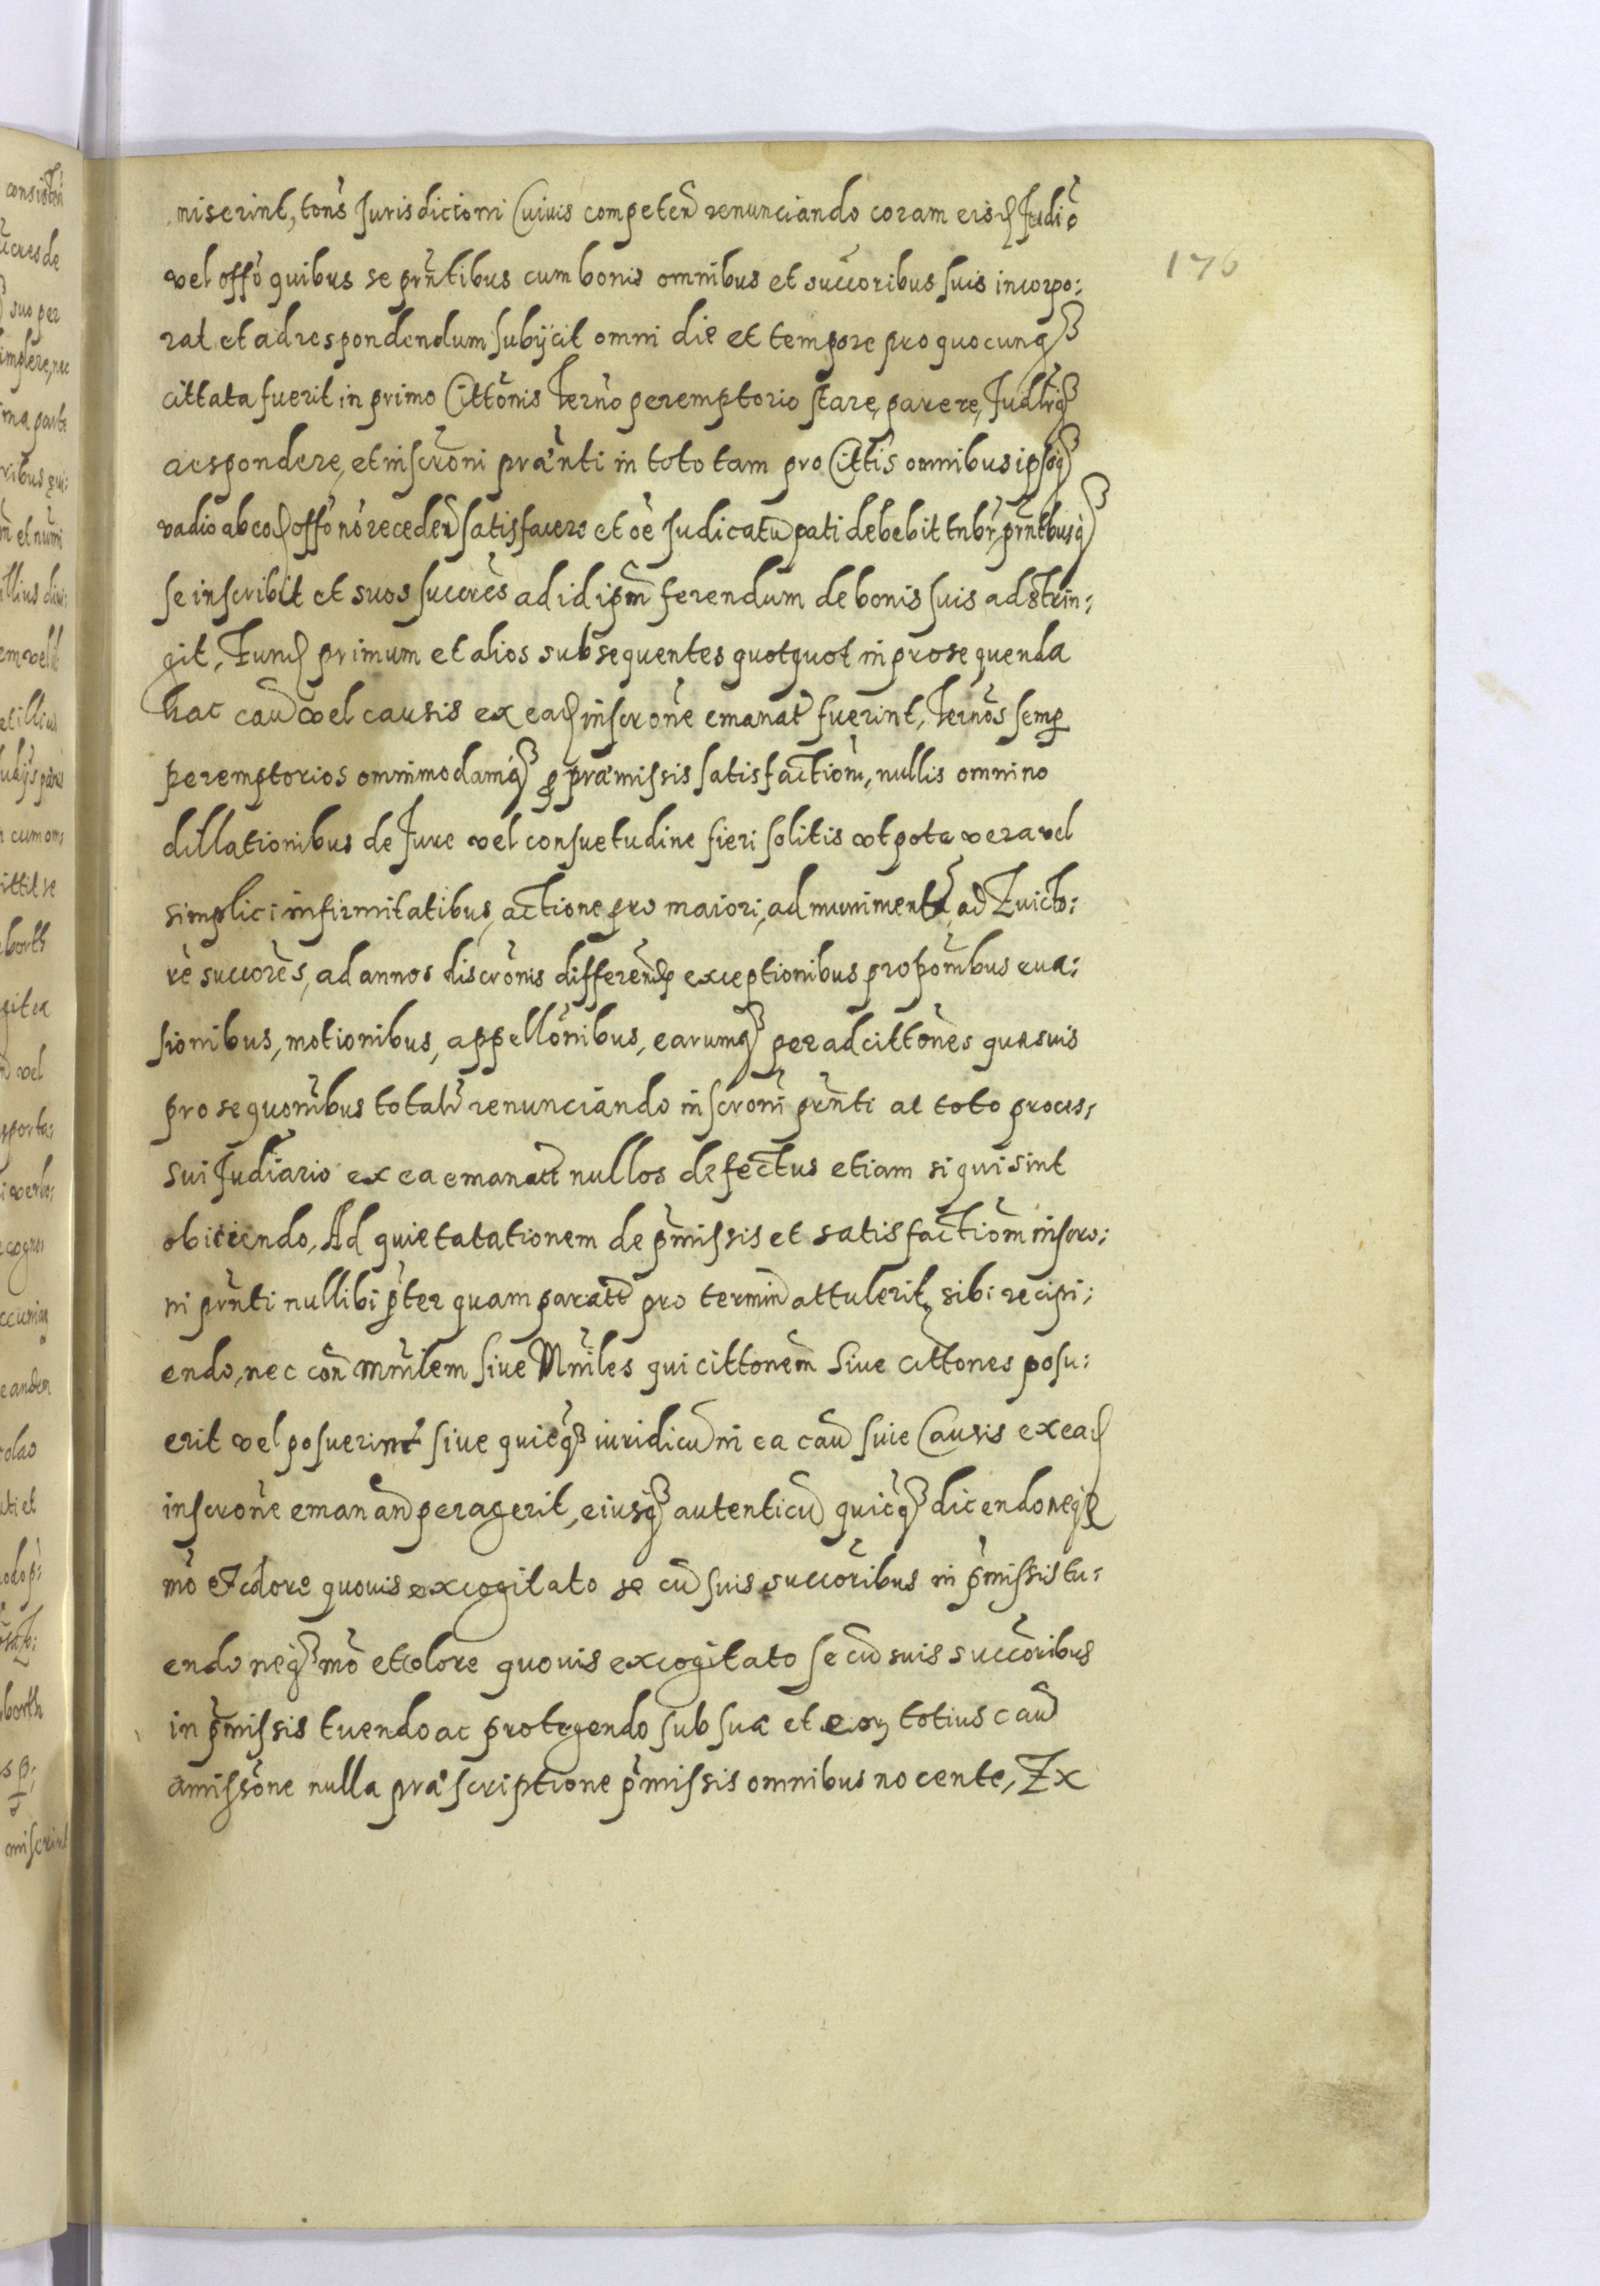 niserint, tons Jurisdictioni Cuiuis competen renunciando coram eisd Judio
176
vel offo quibus se prntibus cum bonis omnibus et succoribus suis incorpo:
rat et ad respondendum subijcit omni die et tempore pro quocunq
cittata fuerit in primo Cittonis Terno peremptorio stare, parere, Judlrq
respondere, et inscroni prænti in toto tam pro Cittis omnibus ipsoq
vadio ab eod offo no receden satisfacere et oe Judicatu pati debebit tnbr, prntbusq
se inscribit et suos succres ad id ipm ferendum de bonis suis adstrin:
git, Tund primum et alios subsequentes quotquot in prosequenda
hac cau vel causis ex ead inscrone emanat fuerint, Ternos semp
peremptorios omnimodamq p præmissis satisfactiom, nullis omnino
dillationibus de Jure vel consuetudine fieri solitis vtpote vera vel
simplici infirmitatibus, actione pro maiori, ad munimenta, ad Euicto:
re succores, ad annos discronis differend exceptionibus proponibus eua:
sionibus, motionibus, appellonibus, earumq per adcittones quasuis
prosequonibus totalr renunciando inscroni prnti ac toto proces:
sui Judiario ex ea emanati nullos defectus etiam si qui sint
obiciendo, Ad quietationem de pmissis et satisfactiom inscro:
ni prnti nullibi pter quam parati pro termin attulerit, sibi recipi:
endo, nec con Mnrlem siue Mnrles qui cittonem siue cittones posu:
erit vel posuerint siue quicq iuridicu in ea cau siue Causis ex ead
inscrone emanan peragerit, eiusq autenticu quicq dicendo neq
mo et colore quouis excogitato se cu suis succoribus in pmissis tu:
endo neq mo et colore quouis excogitato se cu suis succoribus
in pmissis tuendo ac protegendo sub sua et eor totius cau
amissone nulla præscriptione pmissis omnibus nocente, Ex